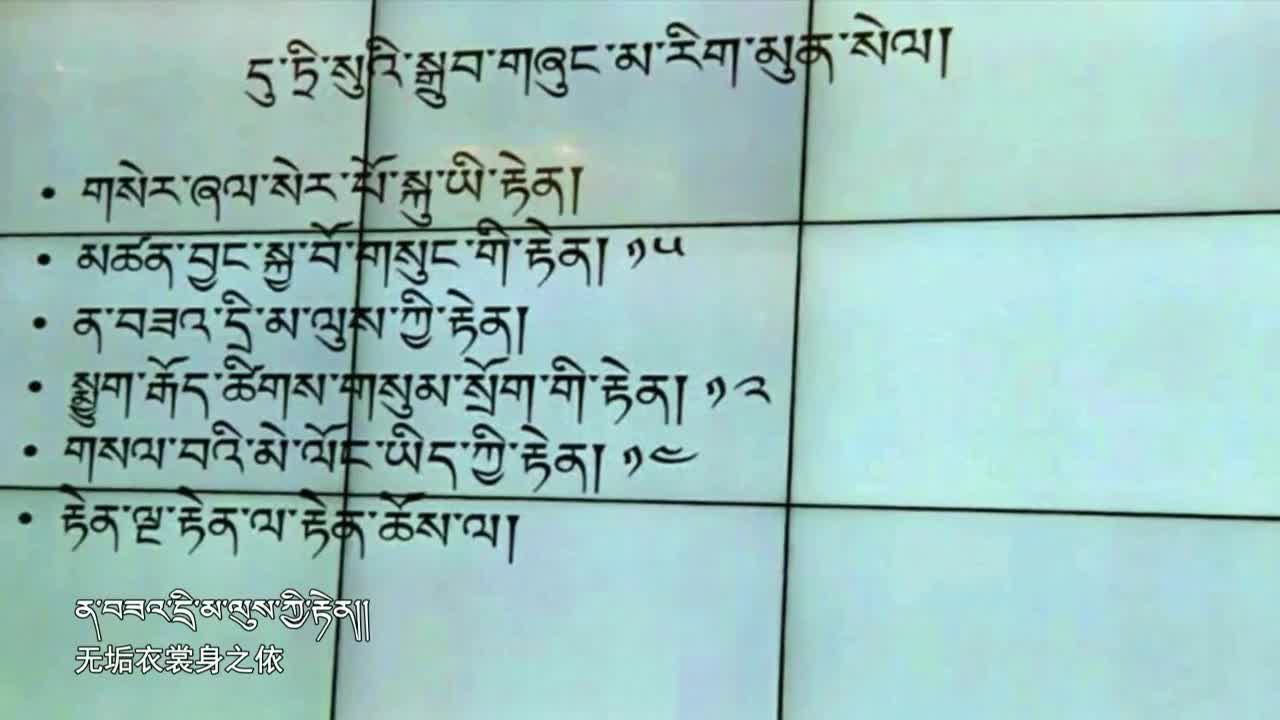 དུ་ཏྲི་སུའི་སྒྲུབ་གཞུང་མ་རིག་མུན་སེལ།
• གསེར་ཞལ་སེར་པོ་སྐུ་ཡི་རྟེན།
• མཚན་བྱང་སྐྱ་བོ་གསུང་གི་རྟེན། ༡༥
• ན་བཟའ་དྲི་མ་ལུས་ཀྱི་རྟེན།
• སྨྱུག་རྒོད་ཚིགས་གསུམ་སྲོག་གི་རྟེན། ༡༢
• གསལ་བའི་མེ་ལོང་ཡིད་ཀྱི་རྟེན། ༡༤
• རྟེན་ལྔ་རྟེན་ལ་རྟེན་ཆོས་ལ།
ན་བཟའ་དྲི་མ་ལུས་ཀྱི་རྟེན༎
无垢衣裳身之依